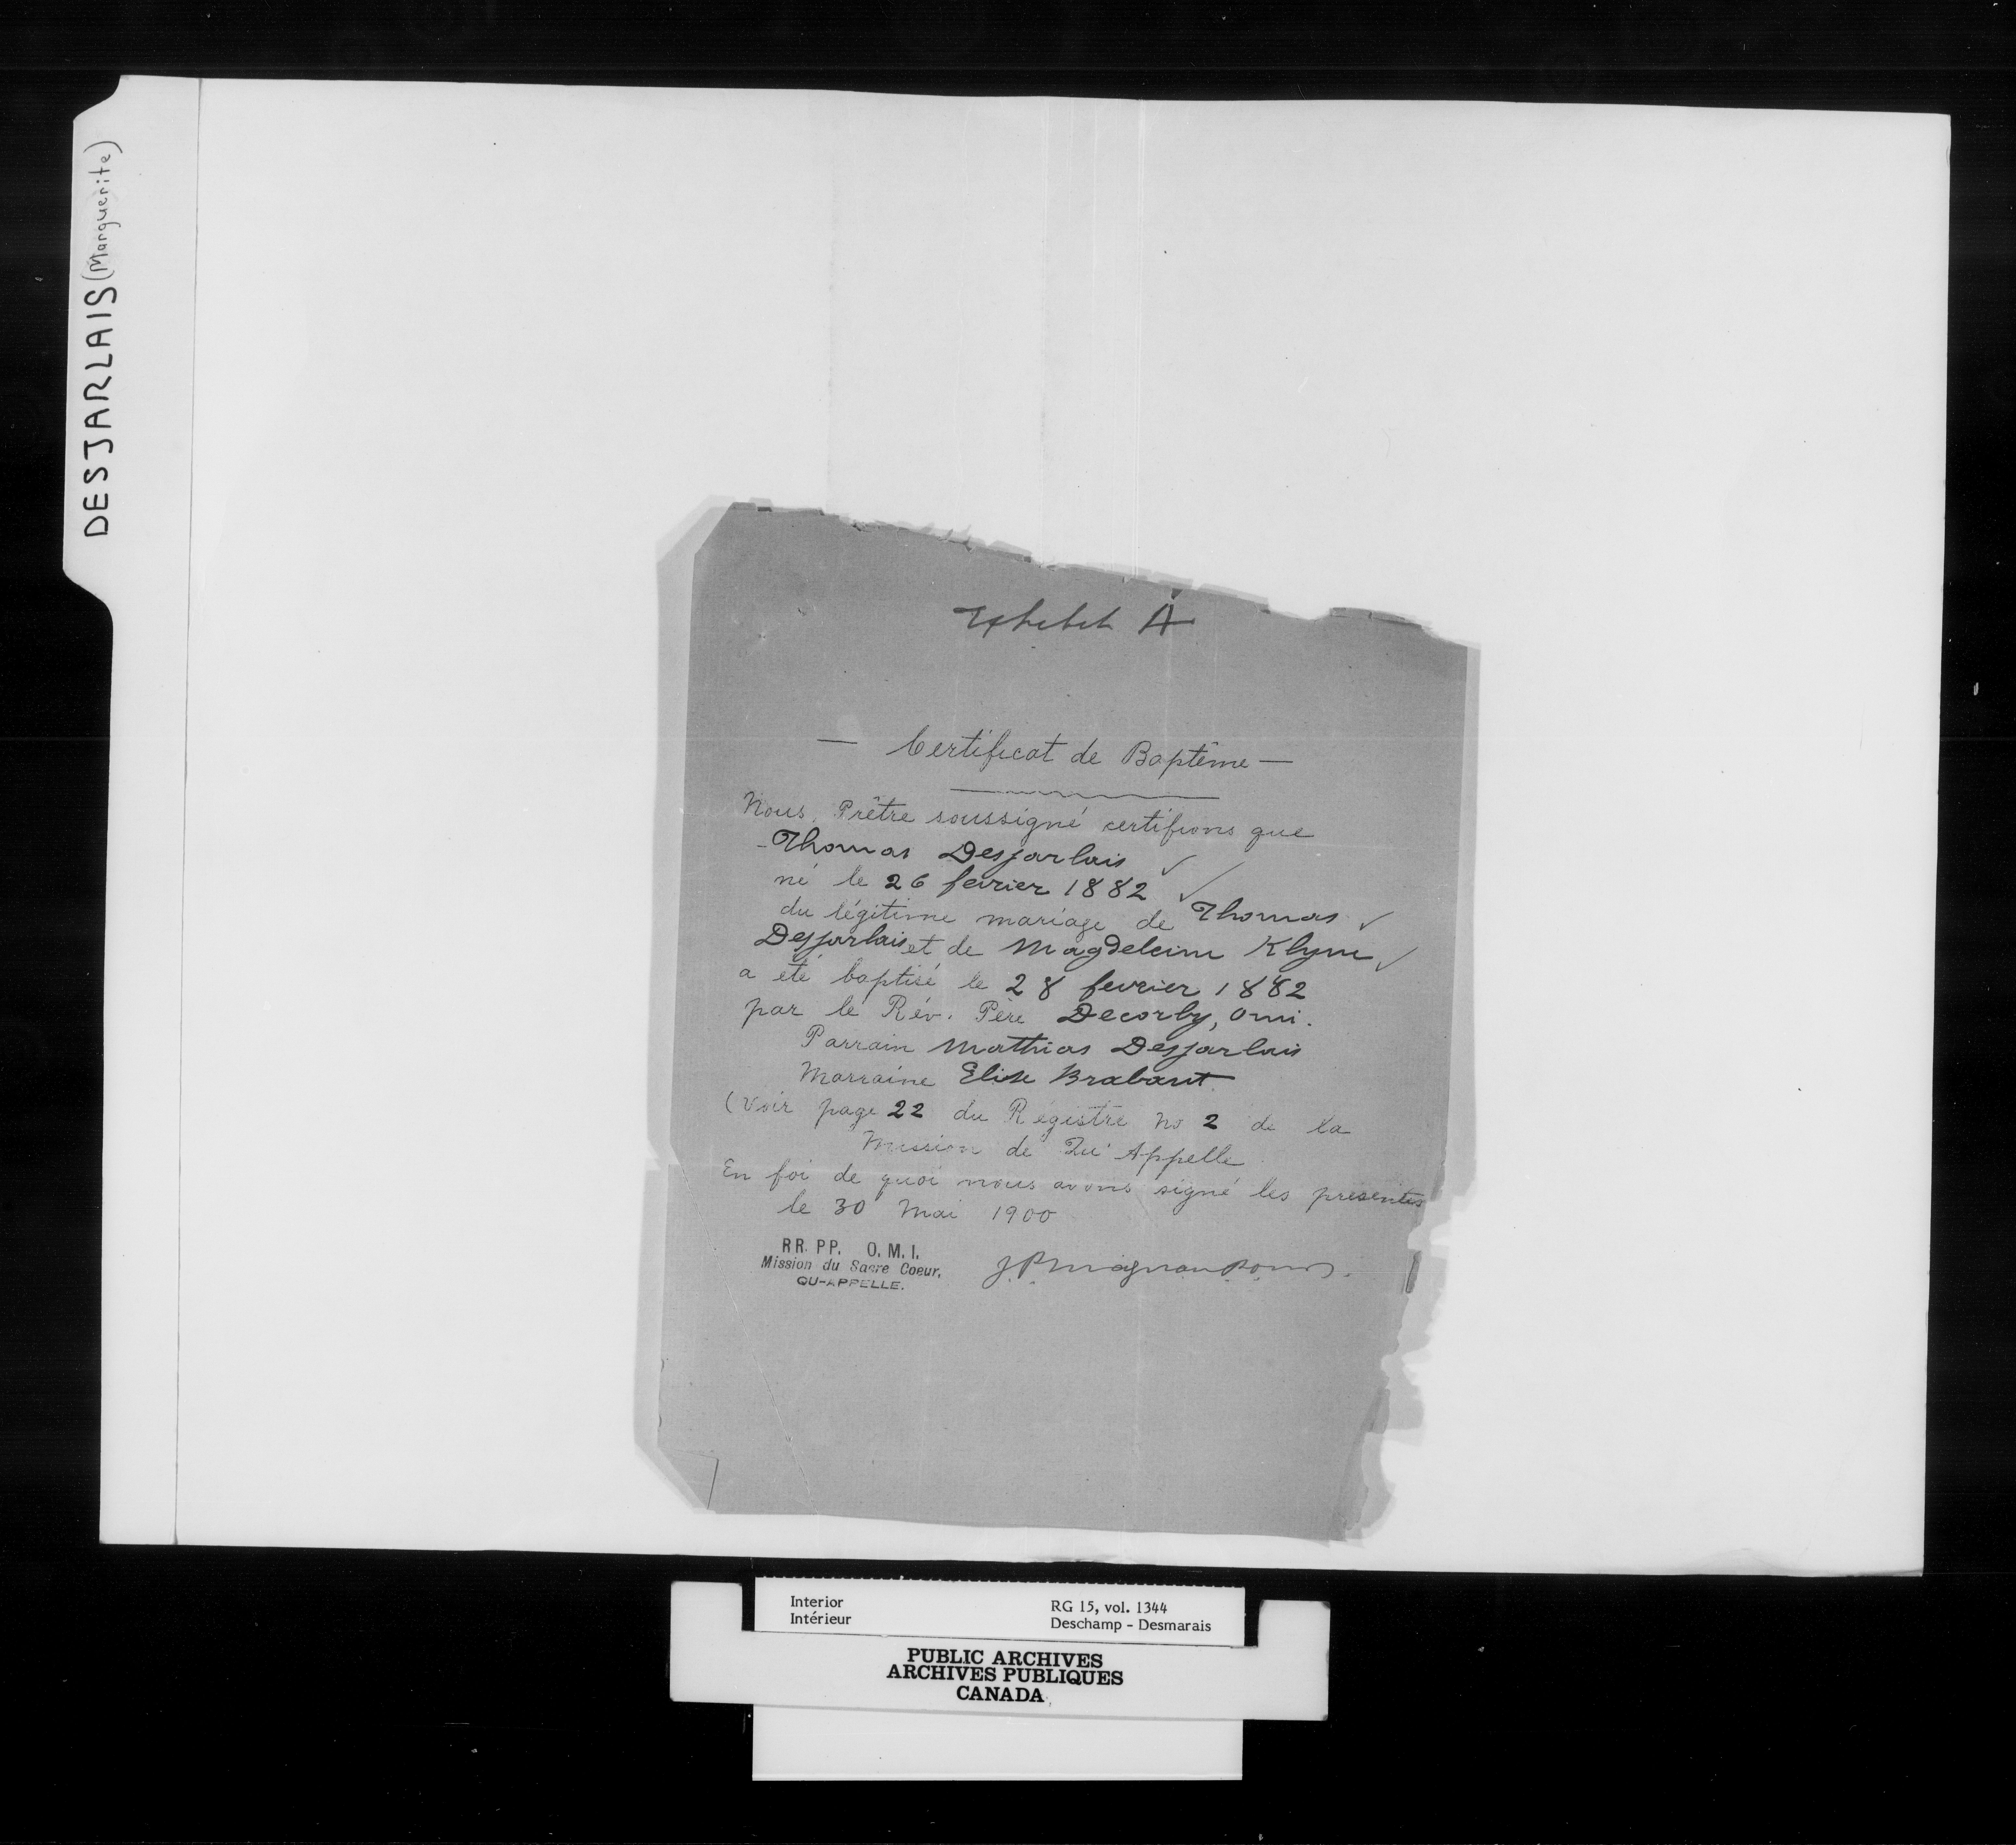 DESJARLAIS (Marguerite)
Exhibit A
— Certificat de Baptême —
Nous, Prêtre soussigné certifions que
Thomas Desjarlais ✓
né le 26 fevrier 1882 ✓
du légitime mariage de Thomas ✓
Desjarlais et de Magdeleine Klyne ✓
a été baptisé le 28 fevrier 1882
par le Rév. Père Decorby, omi.
Parrain Mathias Desjarlais
Marraine Elise Brabant
(Voir page 22 du Registre No 2 de la
Mission de Qu'Appelle
En foi de quoi nous avons signé les presentes
le 30 Mai 1900
RR. PP. O. M. I.
Mission du Sacre Coeur,
QU-APPELLE.
J. P. Magnan
Interior
Intérieur
RG 15, vol. 1344
Deschamp - Desmarais
PUBLIC ARCHIVES
ARCHIVES PUBLIQUES
CANADA